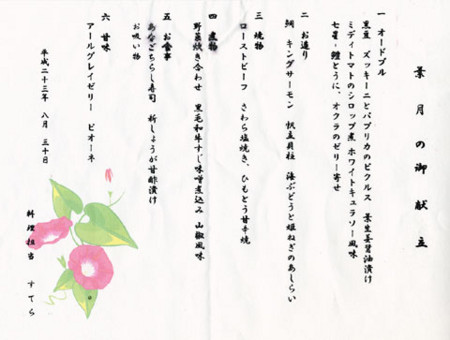 葉月の御献立
一 オードブル
黒豆 ズッキーニとパプリカのピクルス 葉生姜醤油漬け
ミディトマトのシロップ煮 ホワイトキュラソー風味
七星・鱧とうに、オクラのゼリー寄せ
二 お造り
鯛 キングサーモン 帆立貝柱 海ぶどうと姫ねぎのあしらい
三 焼物
ローストビーフ さわら塩焼き、ひもとう甘辛焼
四 煮物
野菜炊き合わせ 黒毛和牛すじ味噌煮込み 山椒風味
五 お食事
あなごちらし寿司 新しょうが甘酢漬け
お吸い物
六 甘味
アールグレイゼリー ピオーネ
平成二十三年 八月 三十日
料理担当 すてら